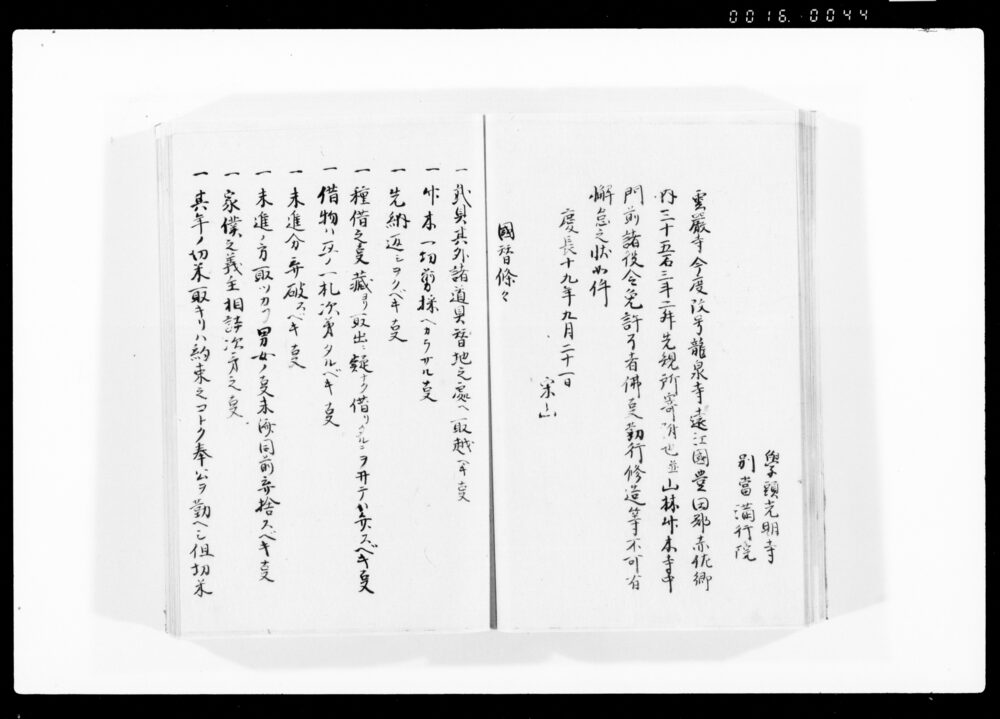 0016.0044
學頭光明寺
別當滿行院
雲巖寺今度改号龍泉寺遠江國豊田郡赤佐郷
内三十五石三斗二升先規所寄附也並山林竹木寺中
門前諸役令免許訖者佛事勤行修造等不可有
懈怠之状如件
慶長十九年九月二十一日
宗山
國替條々
一 武具其外諸道具替地之處へ取越ヘキ事
一 竹木一切剪採ヘカラサル事
一 先納返シヲクベキ事
一 種借之事藏ヨリ取出シ疑ナク借リ ヲ ステスベキ事
一 借物ハ互ノ一札次第タルベキ事
一 未進分弃破スベキ事
一 未進ノ方取ツカフ男女ノ事未濟同前弃捨スベキ事
一 家僕之義主相談次第之事
一 其年ノ切米取キリハ約束之コトク奉公ヲ勤ヘシ但切米